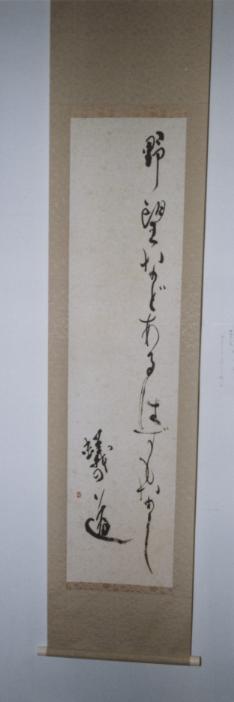 野望などあるはずもなし
蟻の道